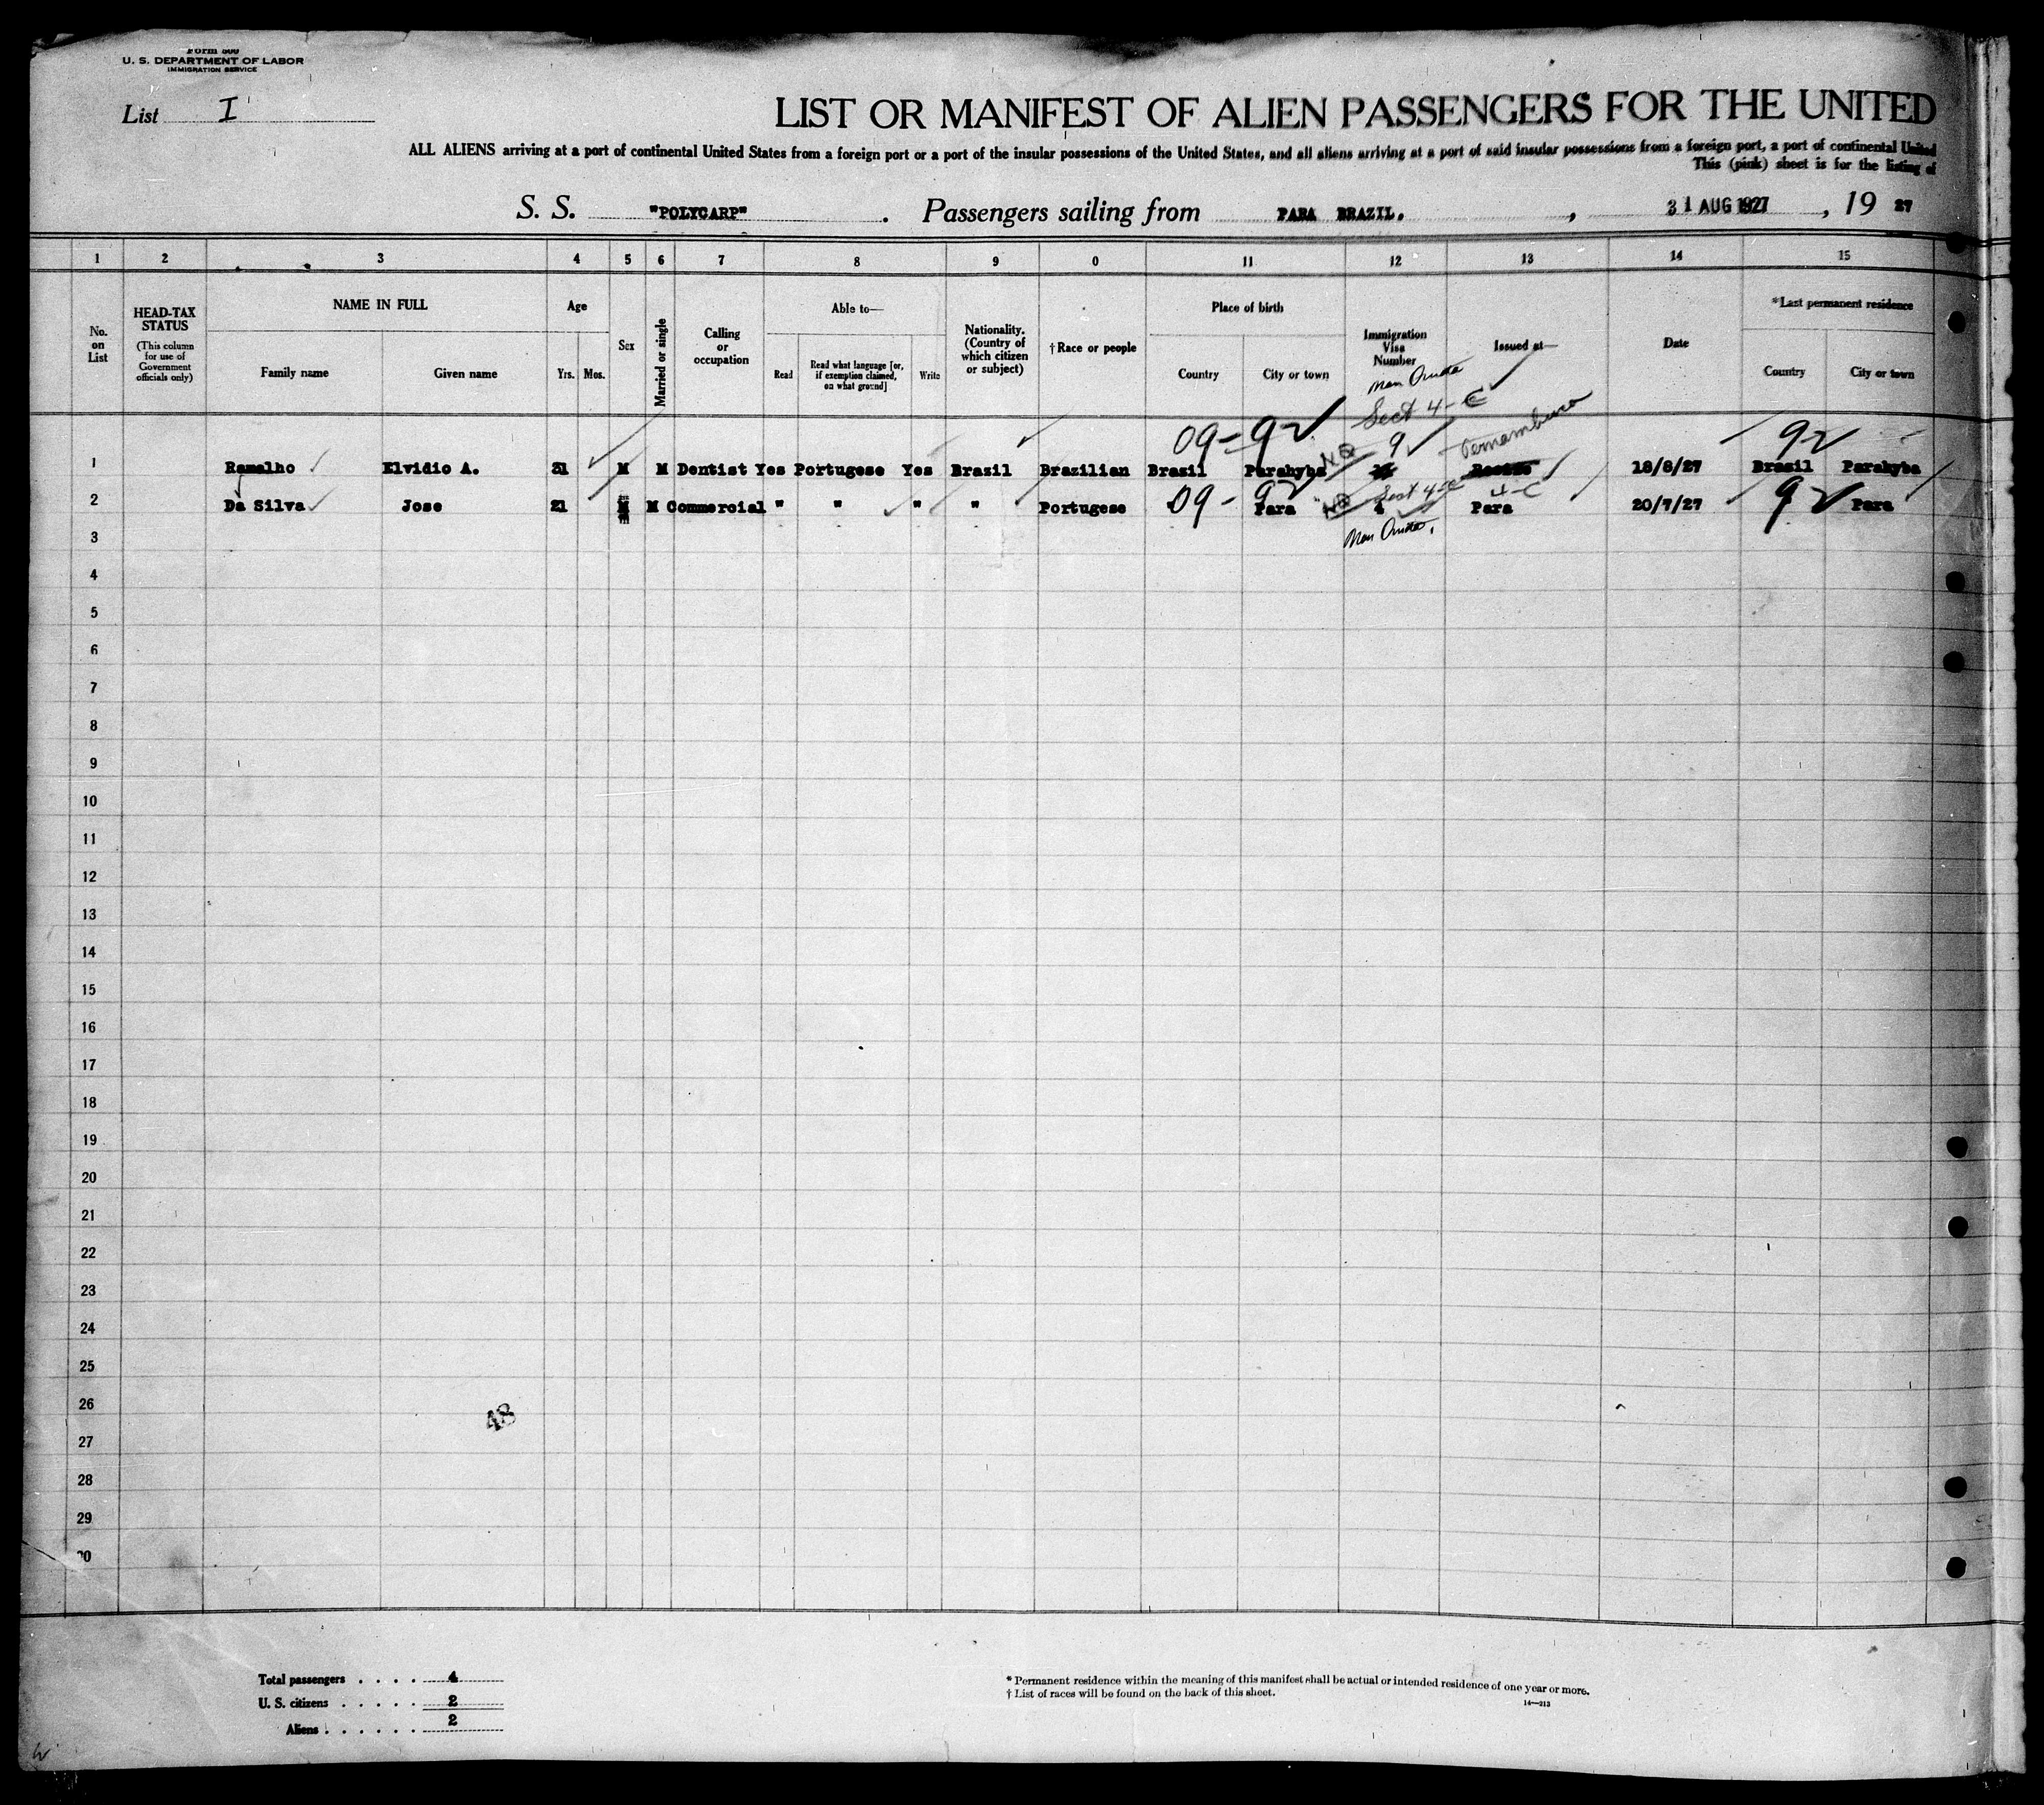 Form 500
U. S. DEPARTMENT OF LABOR
IMMIGRATION SERVICE
List I
LIST OR MANIFEST OF ALIEN PASSENGERS FOR THE UNITED
ALL ALIENS arriving at a port of continental United States from a foreign port or a port of the insular possessions of the United States, and all aliens arriving at a port of said insular possessions from a foreign port, a port of continental United
This (pink) sheet is for the listing of
S. S. "POLYCARP". Passengers sailing from PARA BRAZIL. , 31 AUG 1927 , 19 27
1 2 3 4 5 6 7 8 9 0 11 12 13 14 15
No. on List
HEAD-TAX STATUS
(This column for use of Government officials only)
NAME IN FULL
Family name Given name
Age
Yrs. Mos.
Sex
Married or single
Calling or occupation
Able to—
Read
Read what language [or, if exemption claimed, on what ground]
Write
Nationality. (Country of which citizen or subject)
†Race or people
Place of birth
Country City or town
Immigration Visa Number
Issued at—
Date
*Last permanent residence
Country City or town
Sect 4-C
09-92 9 Pernambuco 92
1 Ramalho Elvidio A. 31 M M Dentist Yes Portugese Yes Brazil Brazilian Brazil Parahyba NQ 18/8/27 Brasil Parahyba
Sect 4-C 4-C
2 Da Silva Jose 21 M M Commercial " " " " Portugese 09-92 Para NQ 4 Para 20/7/27 92 Para
3
4
5
6
7
8
9
10
11
12
13
14
15
16
17
18
19
20
21
22
23
24
25
26
48
27
28
29
30
Total passengers . . . . 4
U. S. citizens . . . . . 2
Aliens . . . . . . 2
* Permanent residence within the meaning of this manifest shall be actual or intended residence of one year or more.
† List of races will be found on the back of this sheet.
14—213